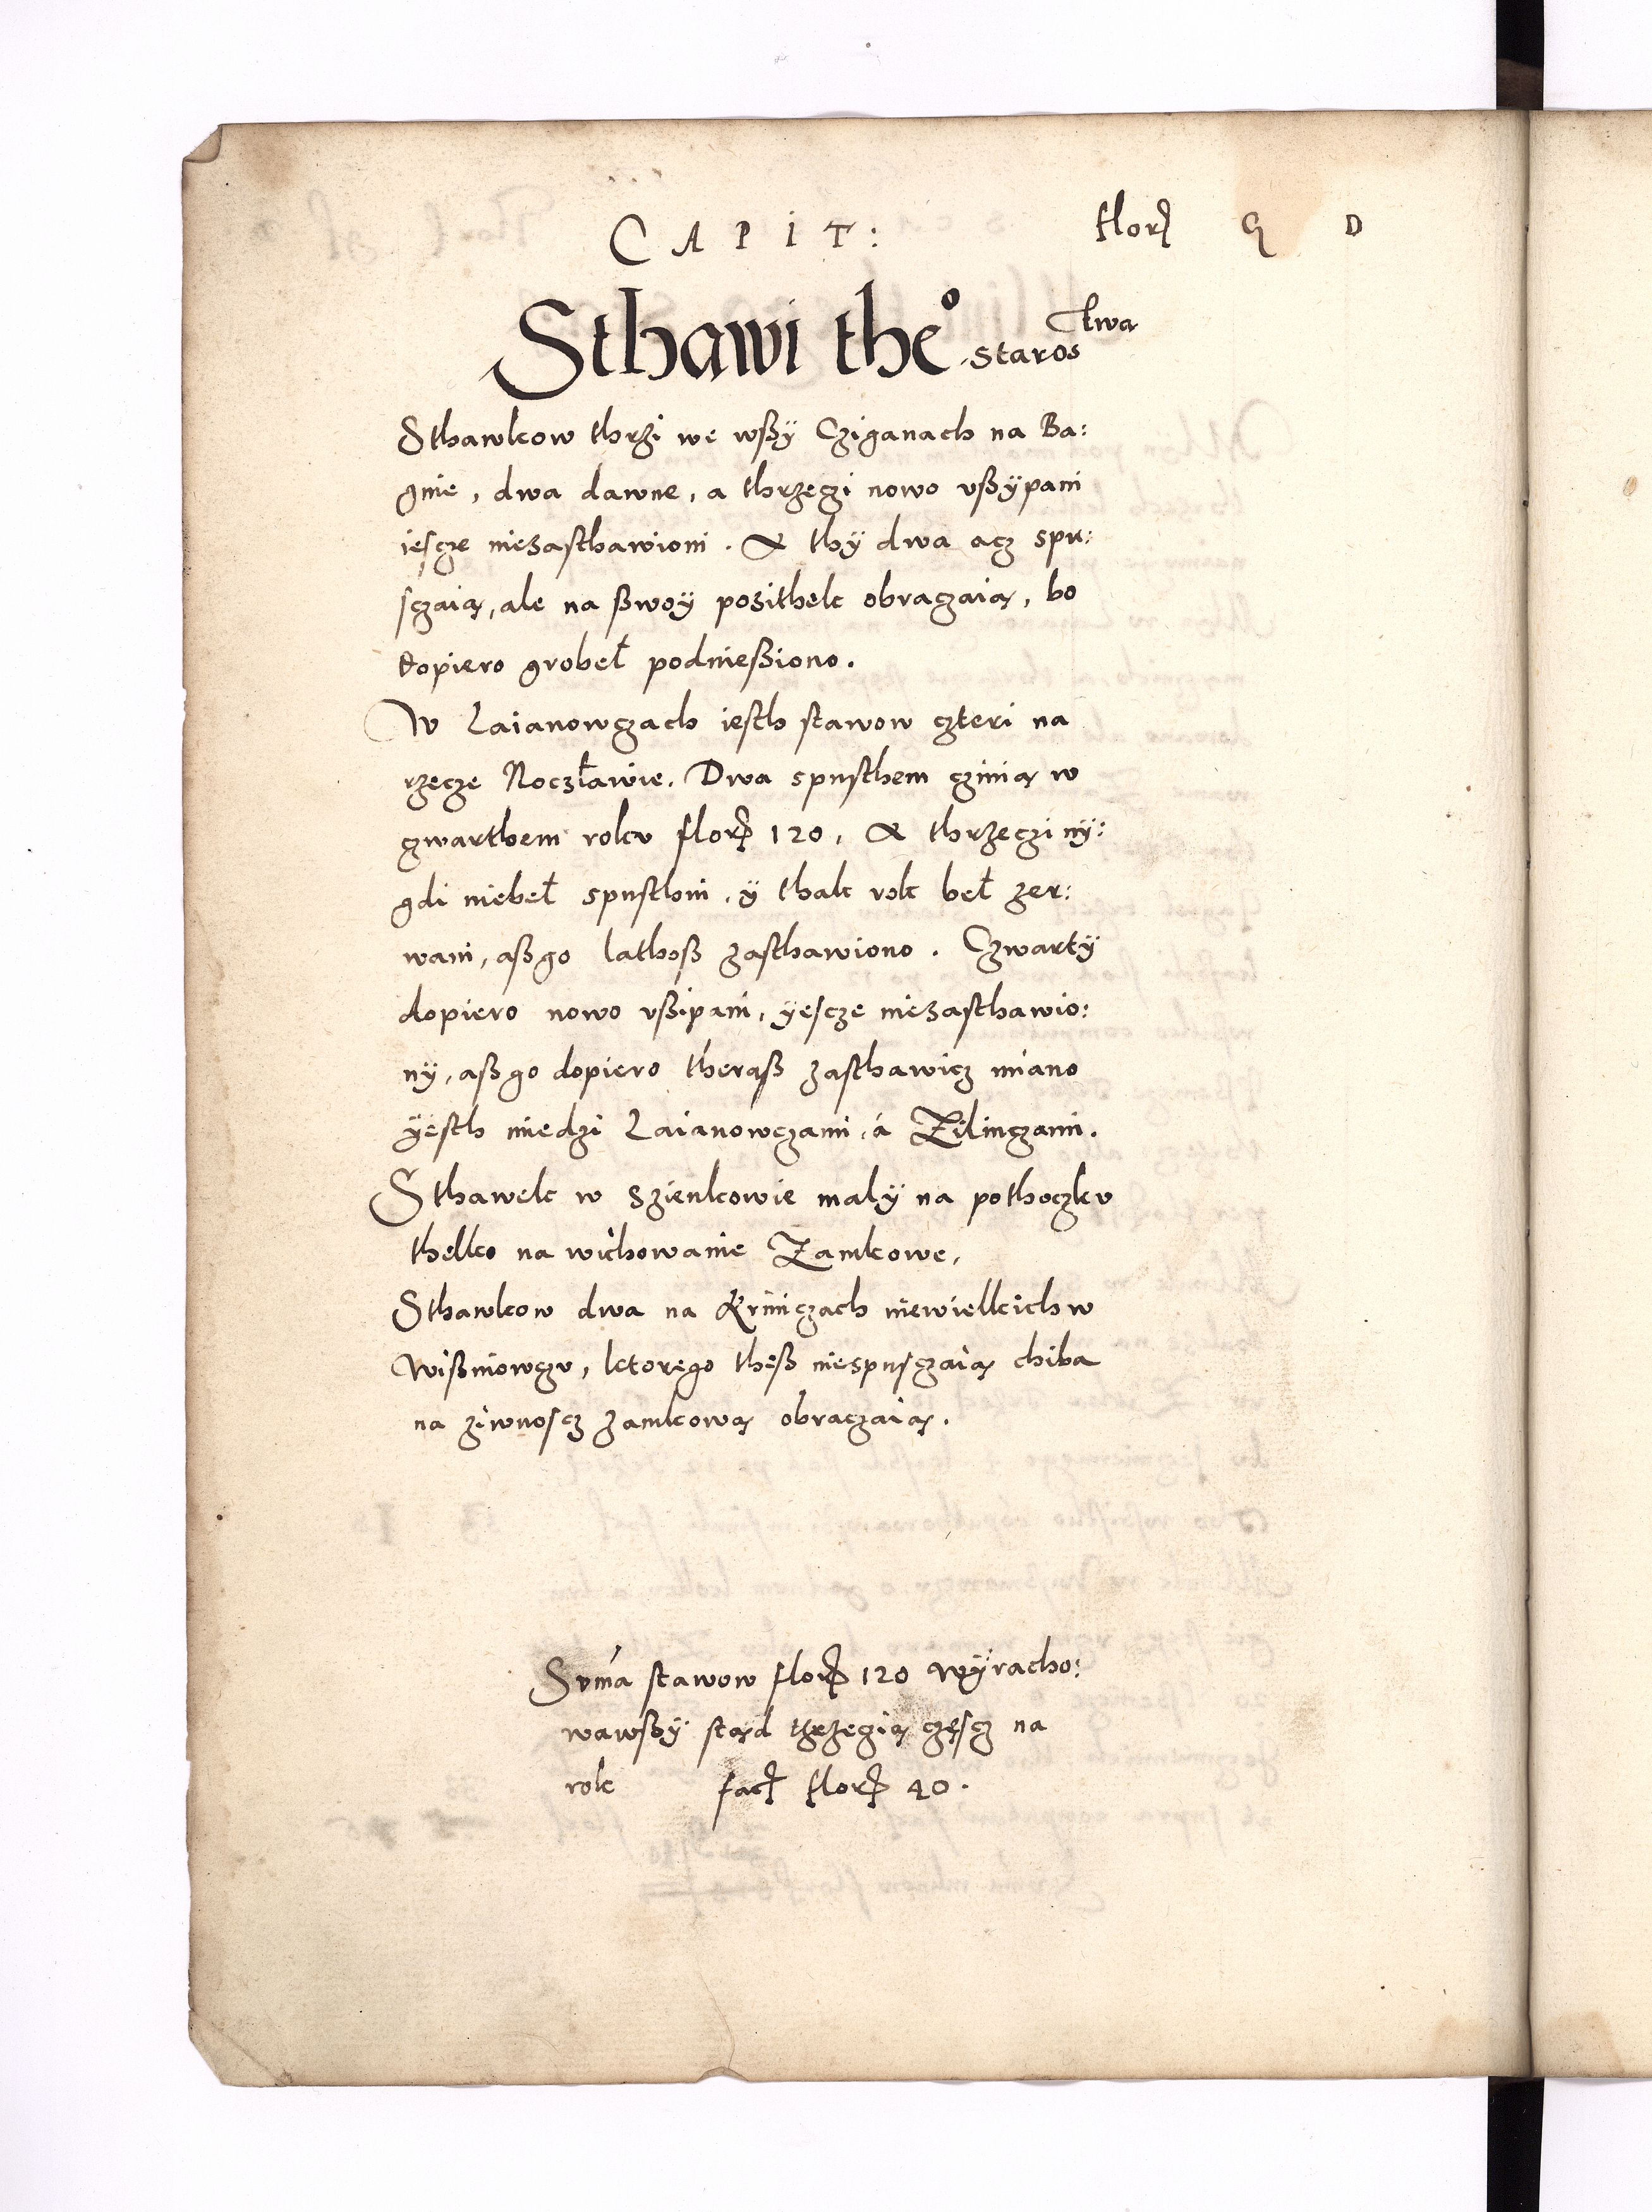 CAPIT: flor g D
Sthawi the° starostwa
Sthawkow thrzi we wßÿ Cziganach na Ba:
gnie, dwa dawne, a thrzeczi nowo vßÿpani
iescze niezasthawioni. A thÿ dwa acz spu:
sczaią, ale na ßwoÿ pozithek obraczaią, bo
dopiero grobel podnießiono.
W Laianowczach iesth stawow czteri na
rzecze Noczławie. Dwa spusthem czinią w
czwarthem rokv flor 120, A thrzeczi nÿ:
gdi niebeł spusthni, ÿ thak rok beł zer:
wani, aßgo lathoß zasthawiono. Czwartÿ
dopiero nowo vßipani, ÿescze niezasthawio:
nÿ, aßgo dopiero theraß zasthawicz miano
ÿesth miedzi Laianowczami, á Zilinczami.
Sthawek w Szienkowie malÿ na pothoczkv
thelko na wichowanie Zamkowe,
Sthawkow dwa na Kriniczach niewielkich w
Wißniowczv, ktorego theß niespusczaią chiba
na ziwnoscz zamkową obraczaią.
Sviña stawow flor 120 wÿracho:
wawßÿ stąd thrzecią częscz na
rok fact flor 40.